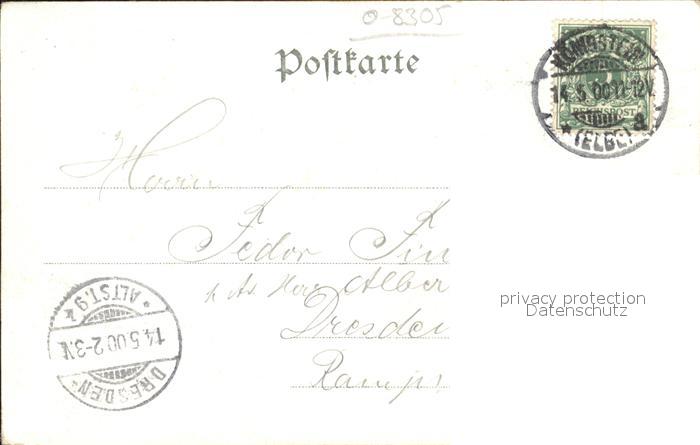 0-8305
Postkarte
KÖNIGSTEIN
14.5.00.11-12V.
REICHSPOST
a
* (ELBE)
Herrn
Fedor Fin
Albert
Dresden
ALTST. 9 z *
14.5.00.2-3.N.
DRESDEN
privacy protection
Datenschutz